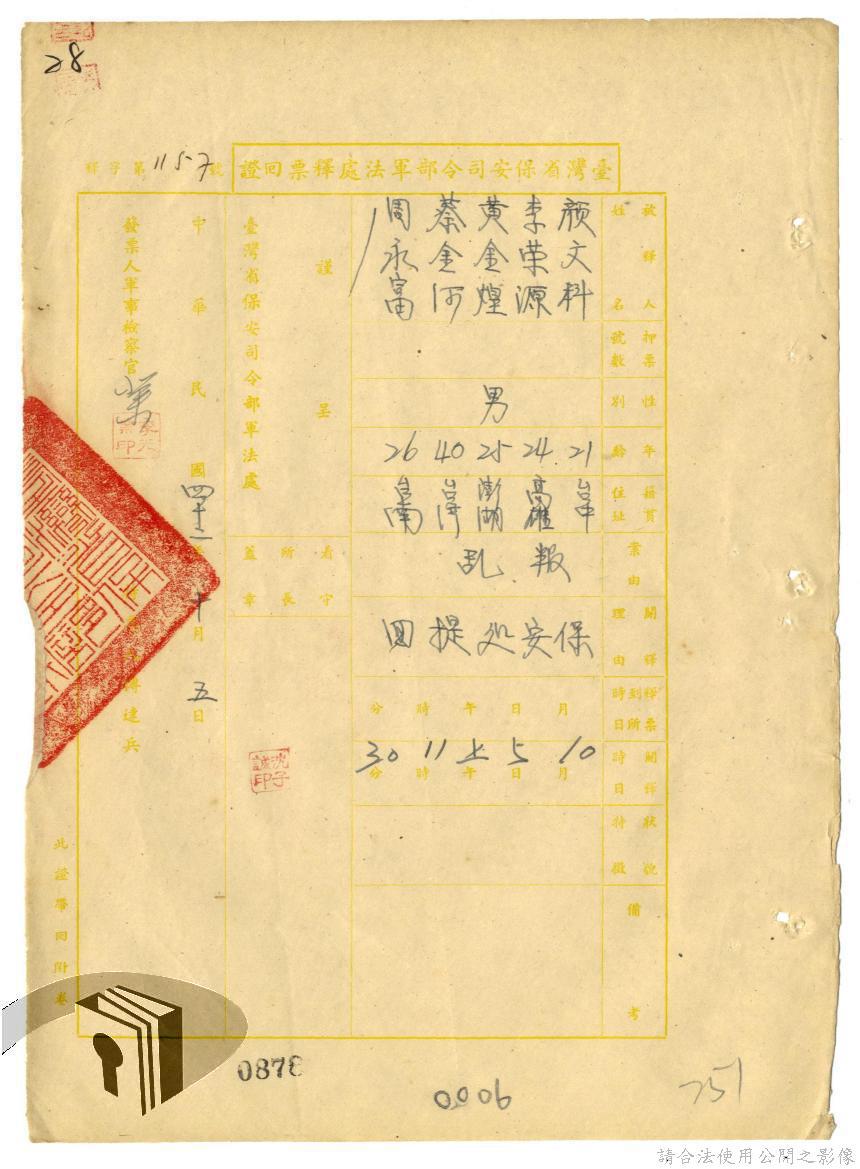 28
臺灣省保安司令部軍法處釋票回證
釋字第1157號
被釋人姓名
顏文科
李荣源
黃金煌
蔡金河
周永富
押票號數
性別
男
年齡
21
24
25
40
26
籍貫住址
高雄
澎湖
台南
案由
叛乱
開釋理由
保安処提回
釋票到所時日
月日午時分
開釋時日
10月5日上午11時30分
狀貌特徵
備考
謹呈
臺灣省保安司令部軍法處
看守所長蓋章
沈子誠印
中華民國四十二年十月五日
發票人軍事檢察官
傳達兵
此證帶回附卷
0876
0006
251
請合法使用公開之影像